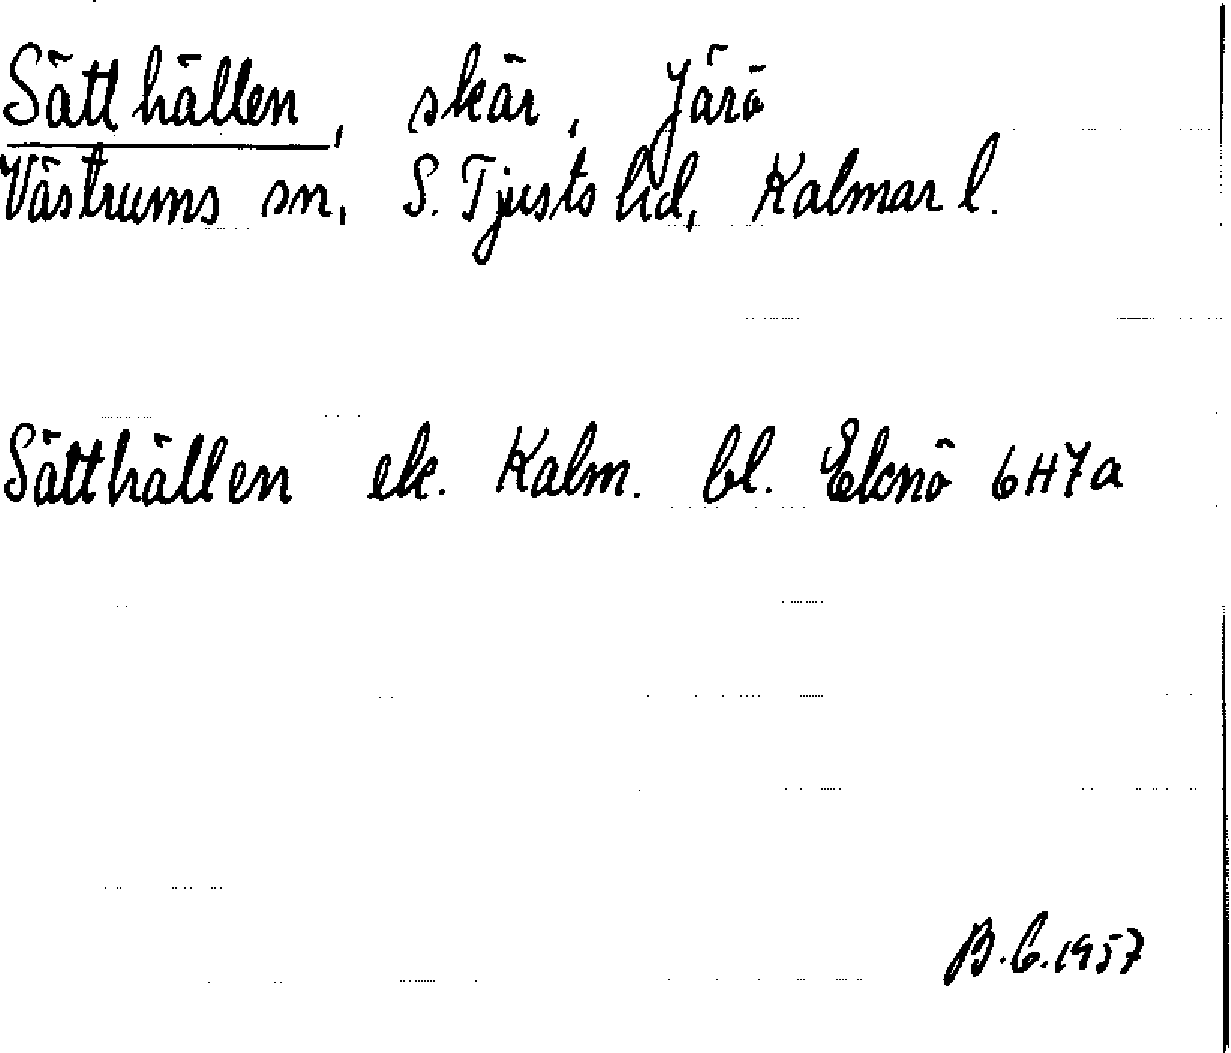 Sätthällen, skär, Järö
Västrums sn, S. Tjusts hd, Kalmar l.
Sätthällen ek. Kalm. bl. Elenö 6H7a
B.C. 1957